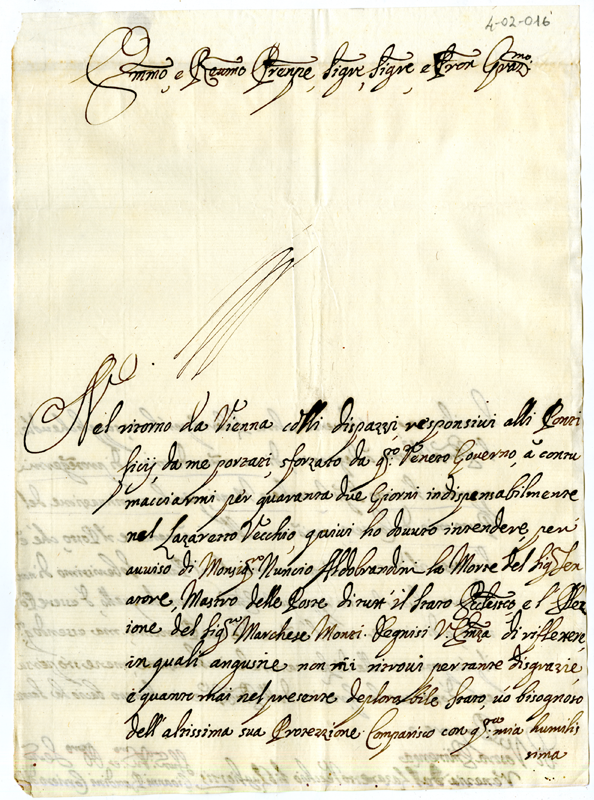 4-02-016
Emmo, e Reumo Prenpe, Sigre, Sigre, e Pron Graz.mo
Nel ritorno da Vienna colli dispazzi responsiui alli Ponti
ficij, da me portati, sforzato da q.sto Veneto Gouerno, à contu
macciarmi per quaranta due Giorni indispensabilmente
nel Lazaretto Vecchio, quiui hò douuto intendere, per
auuiso di Monsig.re Nuncio Aldobrandini la Morte del Sig.r Sen
atore, Mastro delle Poste di tutt' il Stato Ecclesco, e l' Ellez
ione del Sig.r Marchese Monti. Degnisi V. Emza di riflettere
in quali angustie non mi ritroui per tante disgrazie,
e quanto mai nel presente deplorabile stato, uò bisognoso
dell' altissima sua Protezzione. Comparisco con q.sta mia humilis
sima